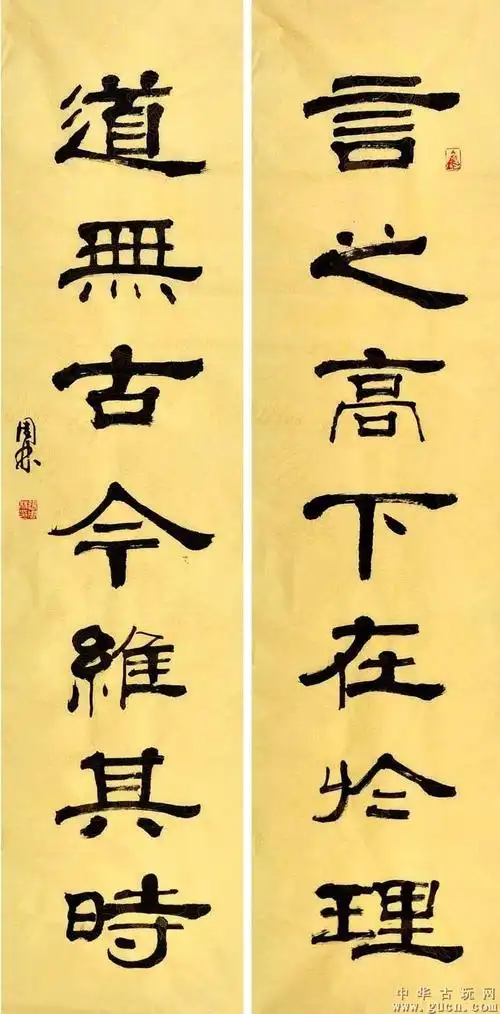 言之高下在於理
道無古今維其時
中华古玩网
www.gucn.com